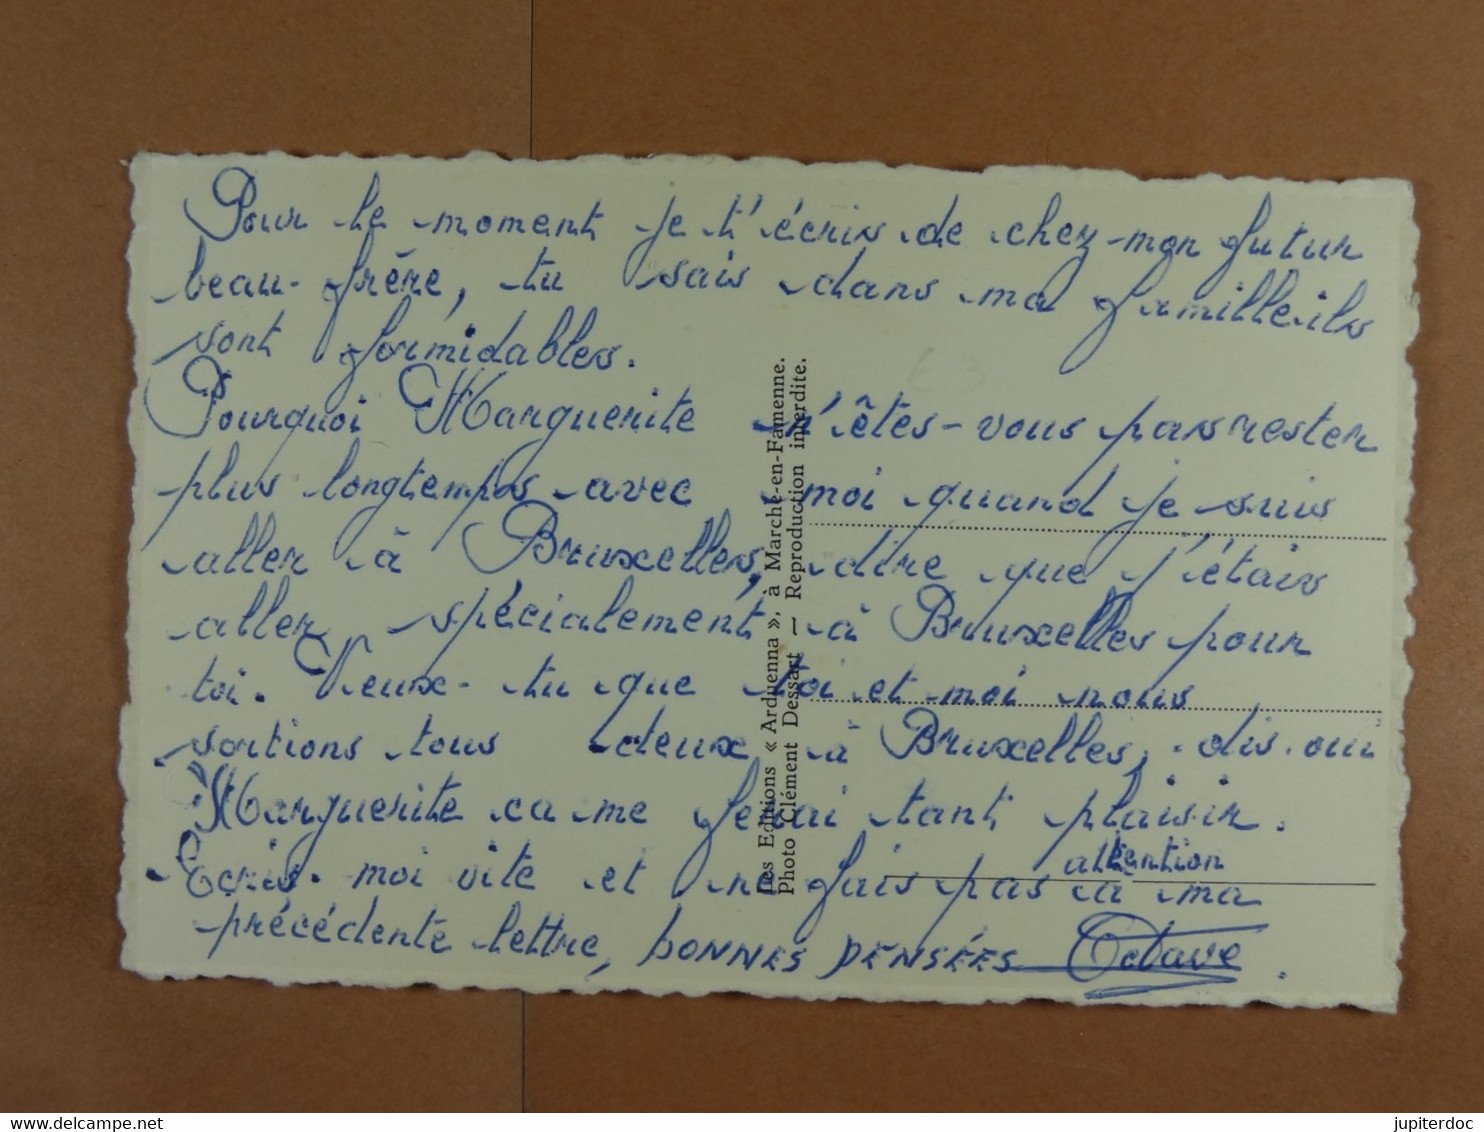 Pour le moment je t'écris de chez mon futur
beau-frère, tu sais dans ma famille ils
sont formidables.
Pourquoi Marguerite n'êtes-vous pas rester
plus longtemps avec moi quand je suis
aller à Bruxelles, dire que j'étais
aller spécialement à Bruxelles pour
toi. Veux-tu que toi et moi nous
sortions tous deux à Bruxelles, dis oui
Marguerite ca me ferai tant plaisir.
Ecris-moi vite et ne fais pas attention à ma
précédente lettre, BONNES PENSÉES Octave.
Les Editions « Arduenna », à Marche-en-Famenne.
Photo Clément Dessart — Reproduction interdite.
delcampe.net
jupiterdoc